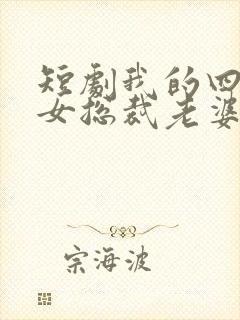 短劇我的四
女總裁老婆
宗海波